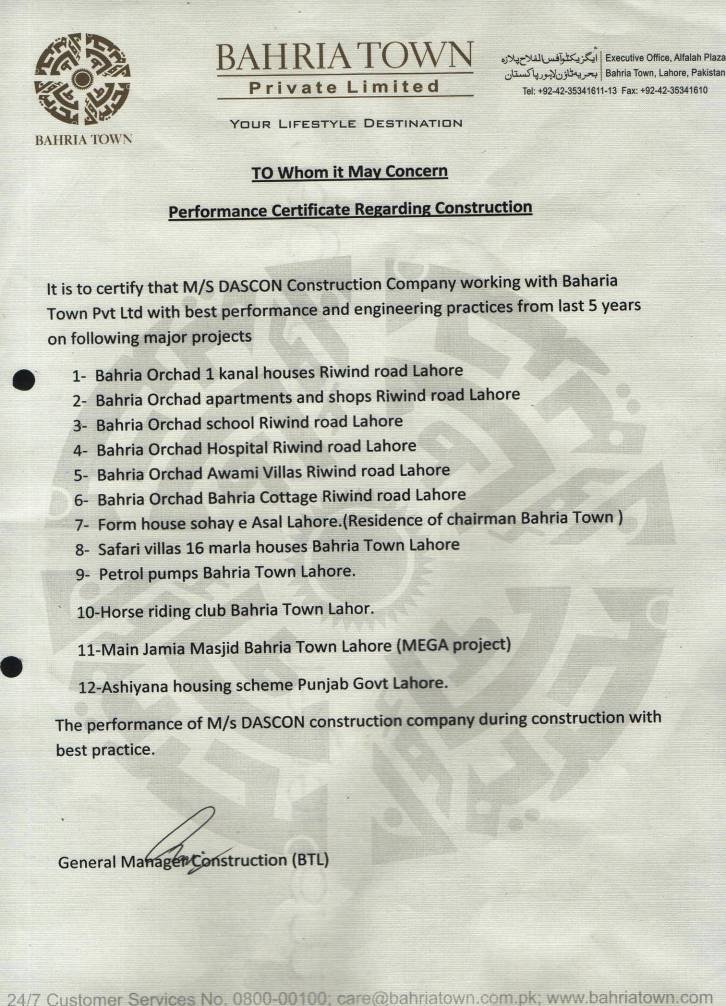 BAHRIA TOWN
BAHRIA TOWN
Private Limited
YOUR LIFESTYLE DESTINATION
ایگزیکٹو آفس الفلاح پلازہ
بحریہ ٹاؤن لاہور پاکستان
Executive Office, Alfalah Plaza
Bahria Town, Lahore, Pakistan
Tel: +92-42-35341611-13 Fax: +92-42-35341610
TO Whom it May Concern
Performance Certificate Regarding Construction
It is to certify that M/S DASCON Construction Company working with Baharia
Town Pvt Ltd with best performance and engineering practices from last 5 years
on following major projects
1- Bahria Orchad 1 kanal houses Riwind road Lahore
2- Bahria Orchad apartments and shops Riwind road Lahore
3- Bahria Orchad school Riwind road Lahore
4- Bahria Orchad Hospital Riwind road Lahore
5- Bahria Orchad Awami Villas Riwind road Lahore
6- Bahria Orchad Bahria Cottage Riwind road Lahore
7- Form house sohay e Asal Lahore.(Residence of chairman Bahria Town )
8- Safari villas 16 marla houses Bahria Town Lahore
9- Petrol pumps Bahria Town Lahore.
10-Horse riding club Bahria Town Lahor.
11-Main Jamia Masjid Bahria Town Lahore (MEGA project)
12-Ashiyana housing scheme Punjab Govt Lahore.
The performance of M/s DASCON construction company during construction with
best practice.
General Manager Construction (BTL)
24/7 Customer Services No. 0800-00100; care@bahriatown.com.pk; www.bahriatown.com